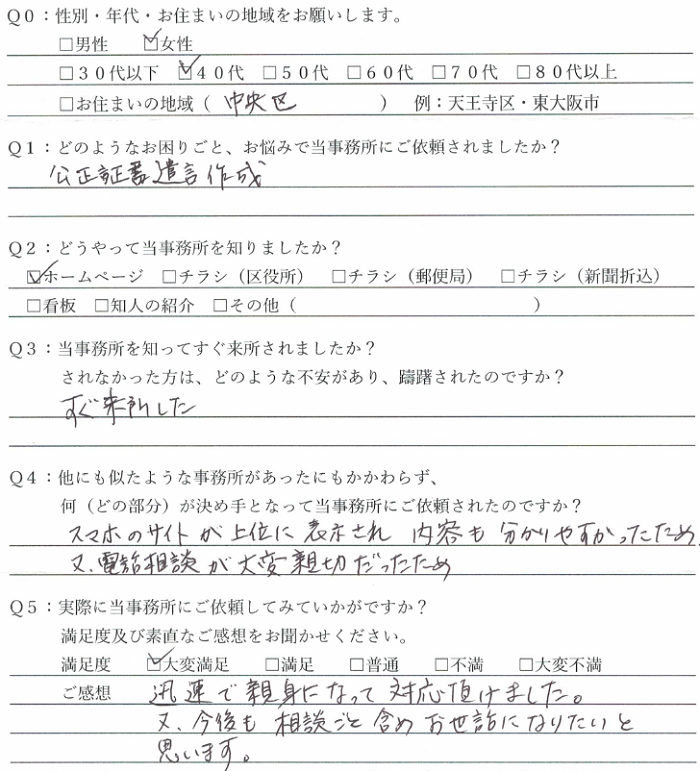 Q0：性別・年代・お住まいの地域をお願いします。
□男性　☑女性
□30代以下　☑40代　□50代　□60代　□70代　□80代以上
□お住まいの地域（　中央区　）　例：天王寺区・東大阪市
Q1：どのようなお困りごと、お悩みで当事務所にご依頼されましたか？
公正証書遺言作成
Q2：どうやって当事務所を知りましたか？
☑ホームページ　□チラシ（区役所）　□チラシ（郵便局）　□チラシ（新聞折込）
□看板　□知人の紹介　□その他（　　　）
Q3：当事務所を知ってすぐ来所されましたか？
されなかった方は、どのような不安があり、躊躇されたのですか？
すぐ来所した
Q4：他にも似たような事務所があったにもかかわらず、
何（どの部分）が決め手となって当事務所にご依頼されたのですか？
スマホのサイトが上位に表示され　内容も分かりやすかったため
又、電話相談が大変親切だったため
Q5：実際に当事務所にご依頼してみていかがですか？
満足度及び素直なご感想をお聞かせください。
満足度　☑大変満足　□満足　□普通　□不満　□大変不満
ご感想　迅速で親身になって対応頂けました。
又、今後も相談ごと含めお世話になりたいと
思います。